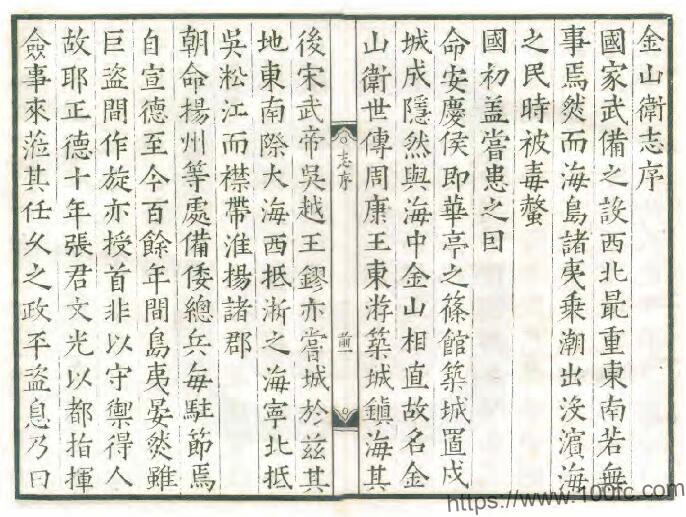 金山衛志序
國家武備之設西北最重東南若無
事焉然而海島諸夷乗潮出没濱海
之民時被毒螫
國初盖嘗患之曰
命安慶侯即華亭之篠館築城置戍
城成隱然與海中金山相直故名金
山衛世傳周康王東游築城鎮海其
志序
前一
後宋武帝吳越王鏐亦嘗城於兹其
地東南際大海西抵浙之海寧北抵
吳松江而襟帶淮揚諸郡
朝命揚州等處備倭總兵每駐節焉
自宣德至今百餘年間島夷晏然雖
巨盗間作旋亦授首非以守禦得人
故耶正德十年張君文光以都指揮
僉事來蒞其任久之政平盗息乃曰
https://www.100fc.com